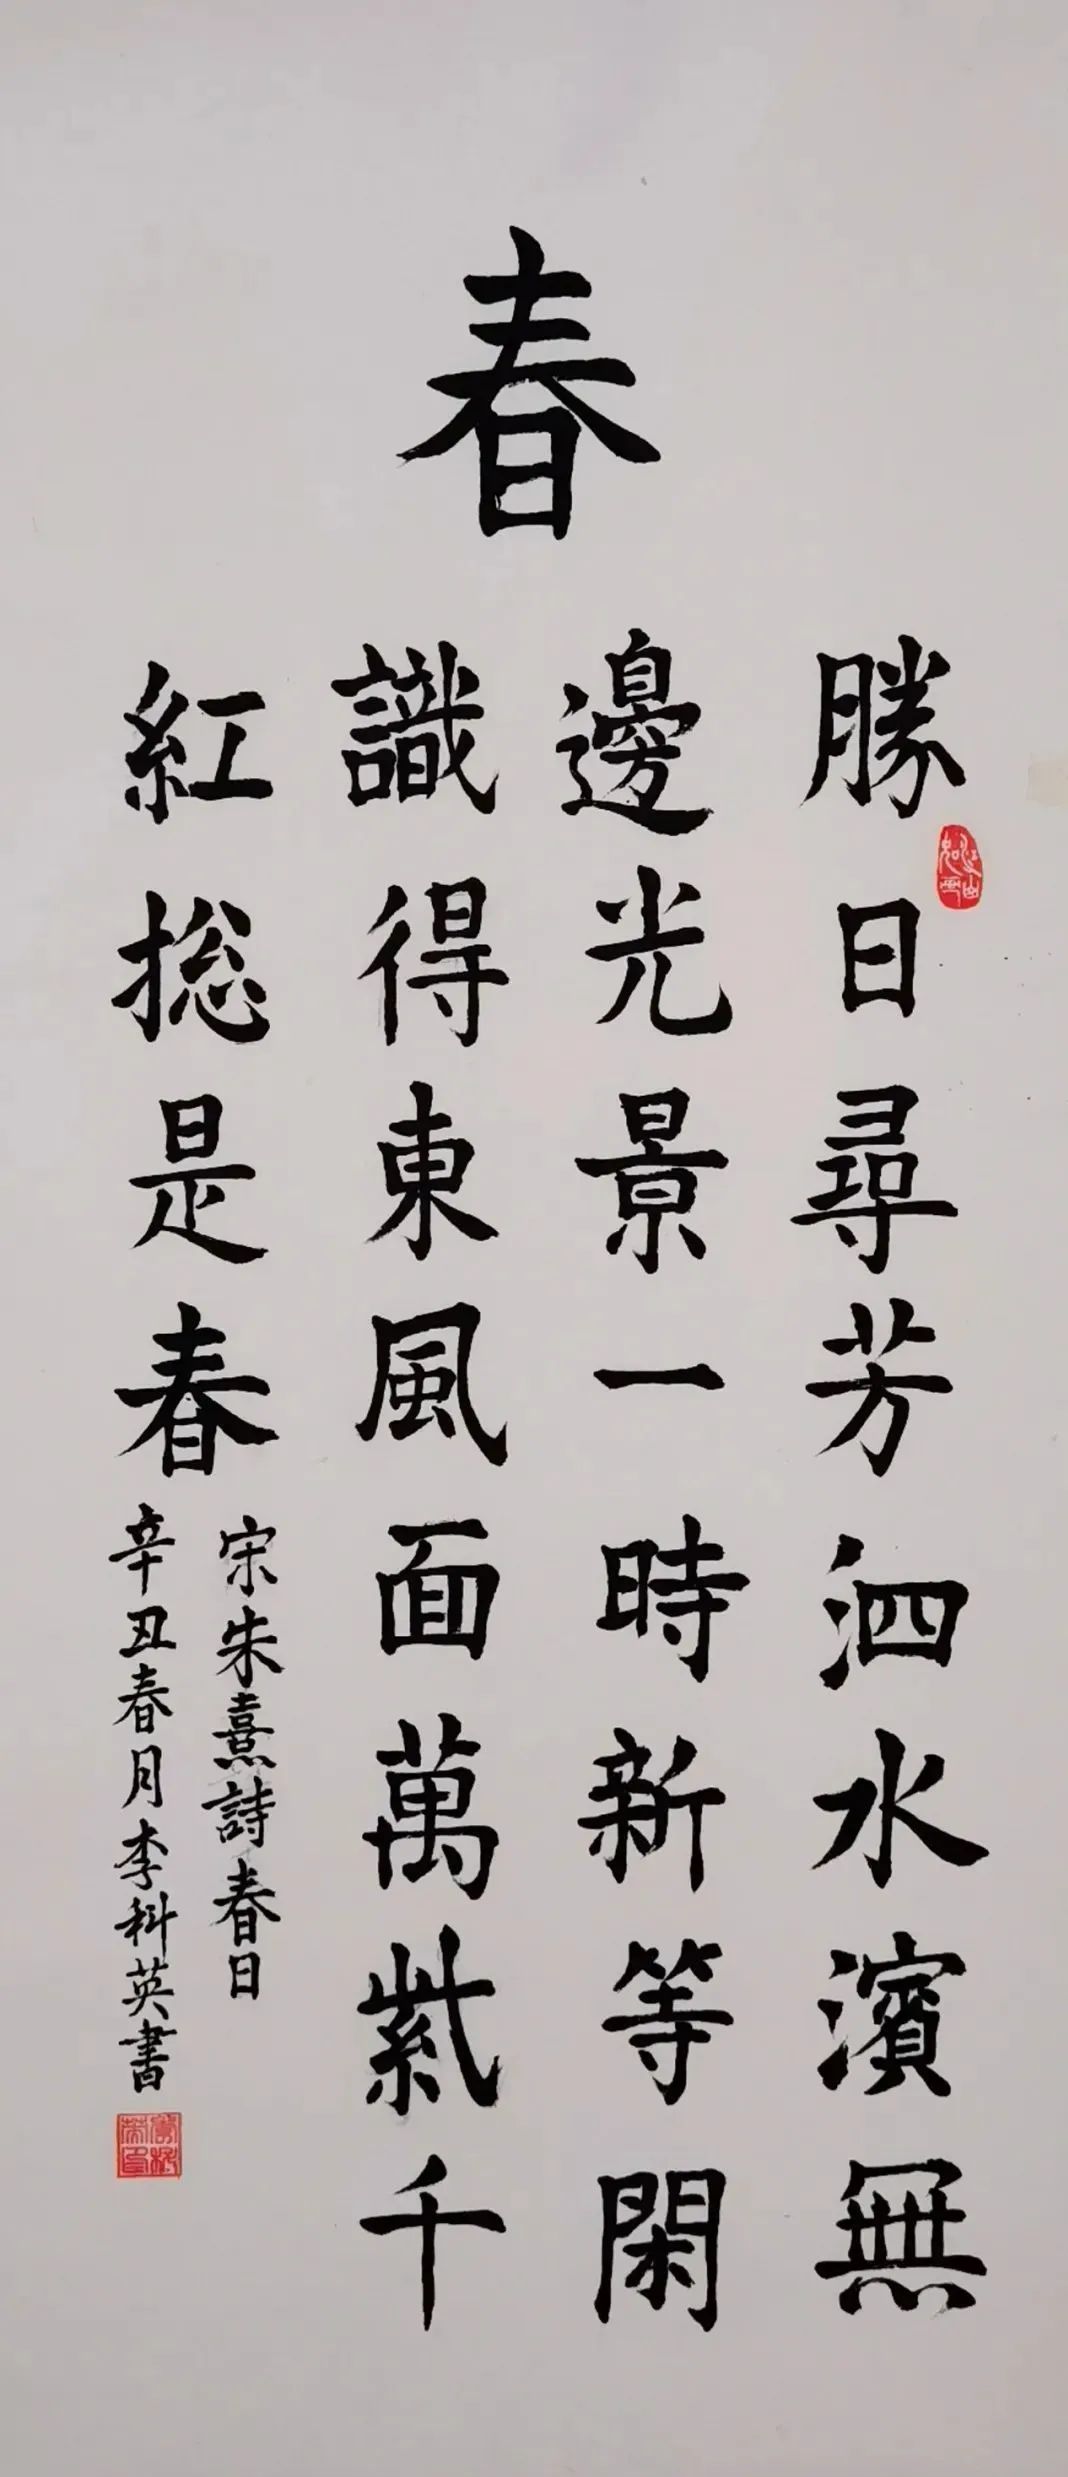 春
勝日尋芳泗水濱無
邊光景一時新等閑
識得東風面萬紫千
紅捴是春
宋朱熹詩春日
辛丑春月李科英書